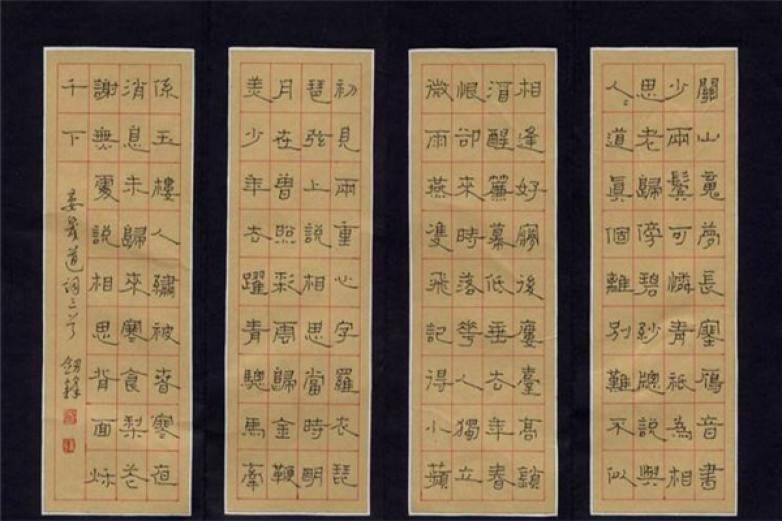 關山魂夢長塞鴈音書
少兩鬢可憐青祇為相
思老歸傍碧紗牕說與
人〻道眞個離別難不似
相逢好夢後廔臺高鎖
酒醒簾幕低垂去年春
恨卻來時落花人獨立
微雨燕雙飛記得小蘋
初見兩重心字羅衣琵
琶弦上說相思當時明
月在曾照彩雲歸金鞭
美少年去躍青驄馬牽
係玉樓人繡被春寒夜
消息未歸來寒食梨花
謝無處說相思背面秌
千下
晏幾道詞三首